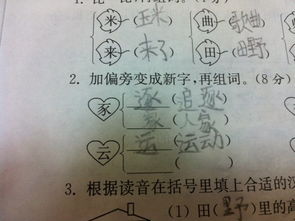 米 玉米 曲 歌曲
来 来了 田 田野
2. 加偏旁变成新字,再组词。(8分)
豕 逐 (追逐)
家 (人家)
云 运 (运动)
( )
3. 根据读音在括号里填上合适的汉
(1) 田(野)里的高